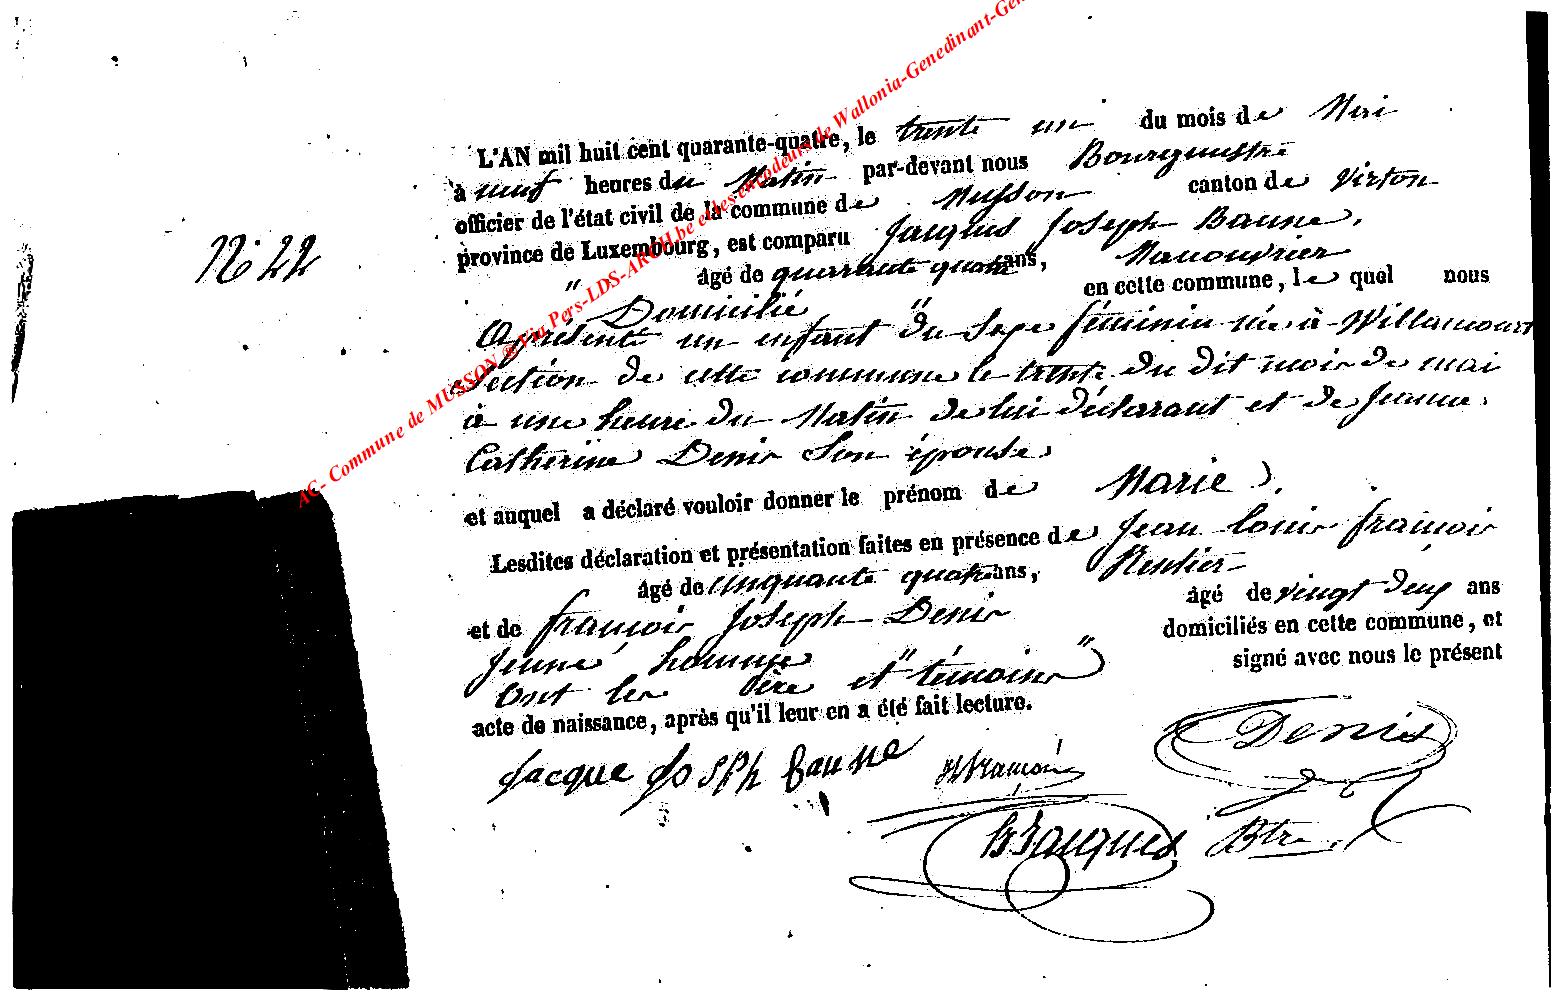 AC- Commune de MUSSON ® Via Pers-LDS-ARCH.be et les encodeurs de Wallonia-Genedinant-Gen
L'AN mil huit cent quarante-quatre, le trente un du mois de Mai
à neuf heures du Matin par-devant nous Bourgmestre
officier de l'état civil de la commune de Musson canton de Virton
province de Luxembourg, est comparu Jacques Joseph Baune,
" âgé de quarante quatre ans, Manouvrier
Domicilié " en cette commune, le quel nous
a présenté un enfant du Sexe féminin née à Willancourt
Section de cette commune le trente du dit mois de mai
à une heure du Matin de lui déclarant et de Jeanne
Catherine Denis Son épouse
et auquel a déclaré vouloir donner le prénom de Marie.
Lesdites déclaration et présentation faites en présence de Jean Louis françois
âgé de cinquante quatre ans, Rentier
et de françois Joseph Denis âgé de vingt deux ans
jeune homme " domiciliés en cette commune, et
Ont les père et témoins " signé avec nous le présent
acte de naissance, après qu'il leur en a été fait lecture.
N° 22
Jacque Joseph baune
françois
Denis
Jacques Btre